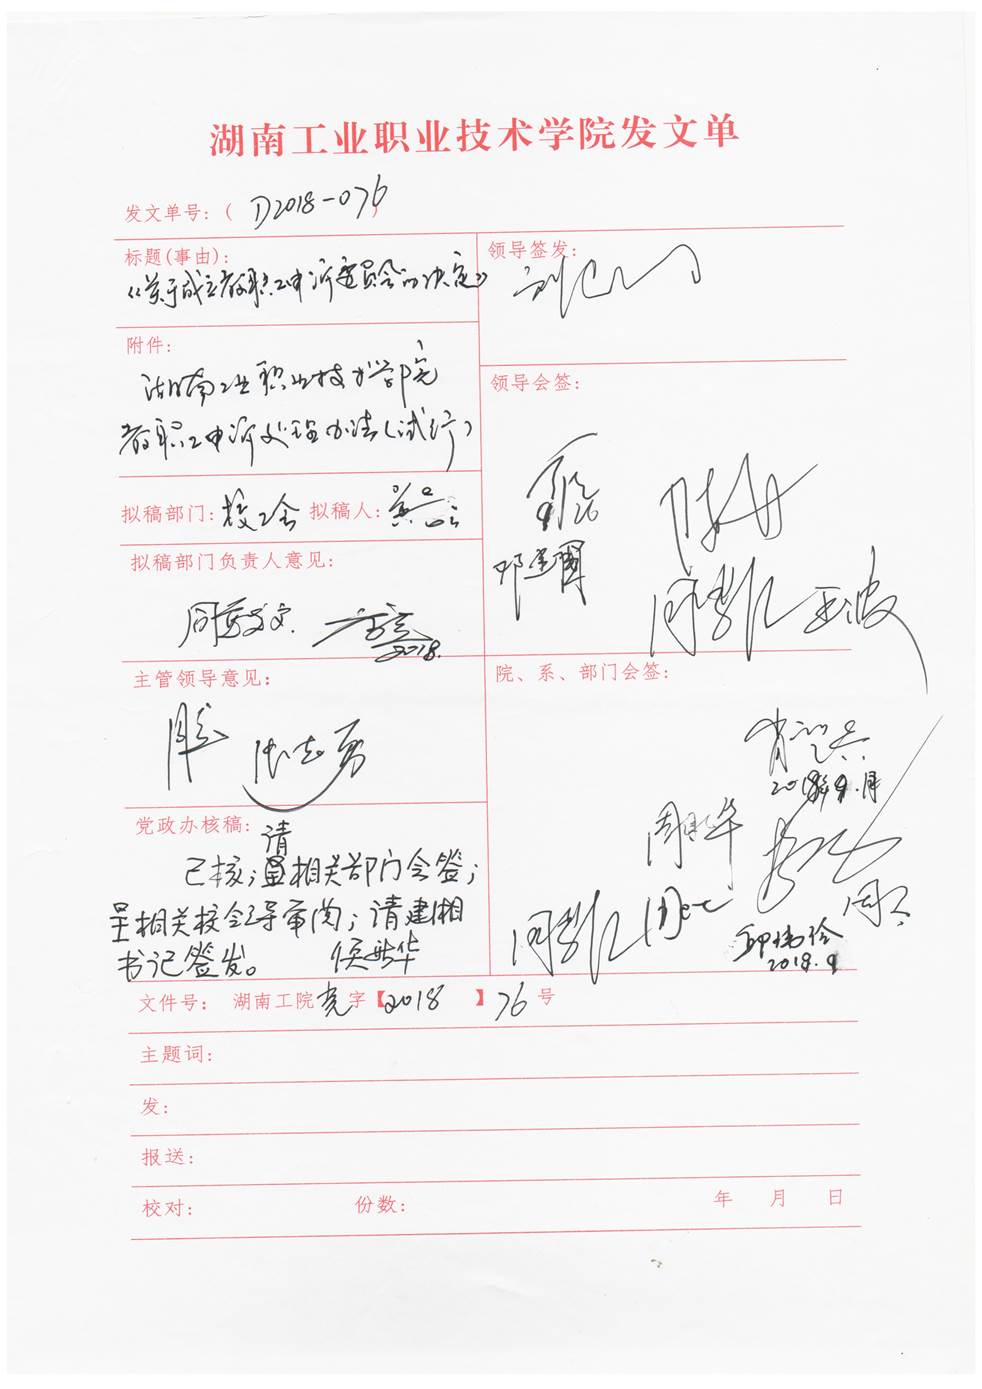 湖南工业职业技术学院发文单
发文单号：（ D2018-076
标题(事由)：
《关于成立教职工申诉委员会的决定》
附件：
湖南工业职业技术学院
教职工申诉处理办法（试行）
拟稿部门：校工会 拟稿人：
拟稿部门负责人意见：
同意发文.
2018.
主管领导意见：
党政办核稿：
请
已核；相关部门会签；
呈相关校领导审阅；请建湘
书记签发。
领导签发：
领导会签：
邓建国
王波
院、系、部门会签：
2018年9.月
2018.9
文件号： 湖南工院党字【2018 】76号
主题词：
发：
报送：
校对： 份数： 年 月 日